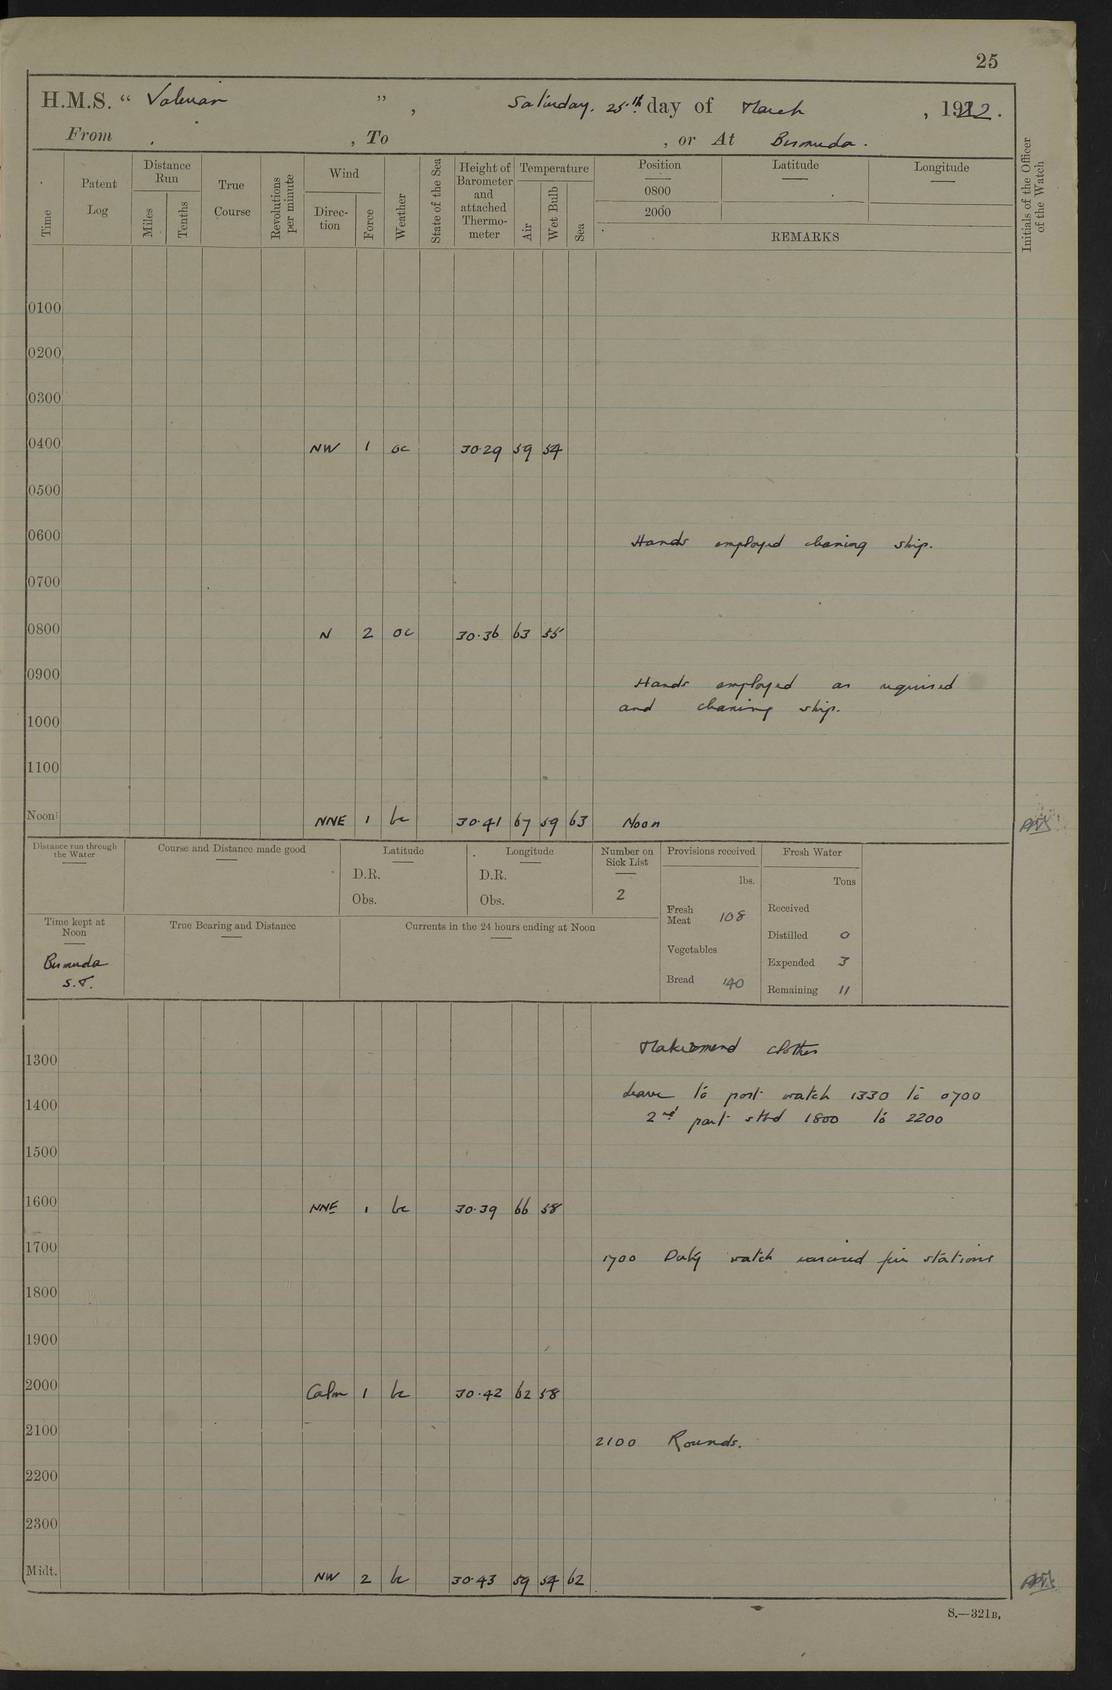 25
H.M.S. “ Valerian ” , Saturday. 25th day of March , 1922.
From , To , or At Bermuda.
Time
Patent Log
Distance Run
Miles
Tenths
True Course
Revolutions per minute
Wind
Direc-tion
Force
Weather
State of the Sea
Height of Barometer and attached Thermo-meter
Temperature
Air
Wet Bulb
Sea
Position
0800
2000
Latitude
Longitude
REMARKS
Initials of the Officer of the Watch
0100
0200
0300
0400 NW 1 oc 30·29 59 54
0500
0600 Hands employed cleaning ship.
0700
0800 N 2 oc 30·36 63 55
0900 Hands employed as required
and cleaning ship.
1000
1100
Noon NNE 1 bc 30·41 67 59 63 Noon
Distance run through the Water
Course and Distance made good
Latitude
D.R.
Obs.
Longitude
D.R.
Obs.
Number on Sick List
2
Provisions received
lbs.
Fresh Meat 108
Vegetables
Bread 140
Fresh Water
Tons
Received
Distilled 0
Expended 3
Remaining 11
Time kept at Noon
Bermuda
S.T.
True Bearing and Distance
Currents in the 24 hours ending at Noon
Make & mend clothes
1300
Leave to port watch 1330 to 0700
1400
2nd part stbd 1800 to 2200
1500
1600 NNE 1 bc 30·39 66 58
1700 1700 Duty watch exercised fire stations
1800
1900
2000 Calm 1 bc 30·42 62 58
2100 2100 Rounds.
2200
2300
Midt. NW 2 bc 30·43 59 54 62
S.—321B.